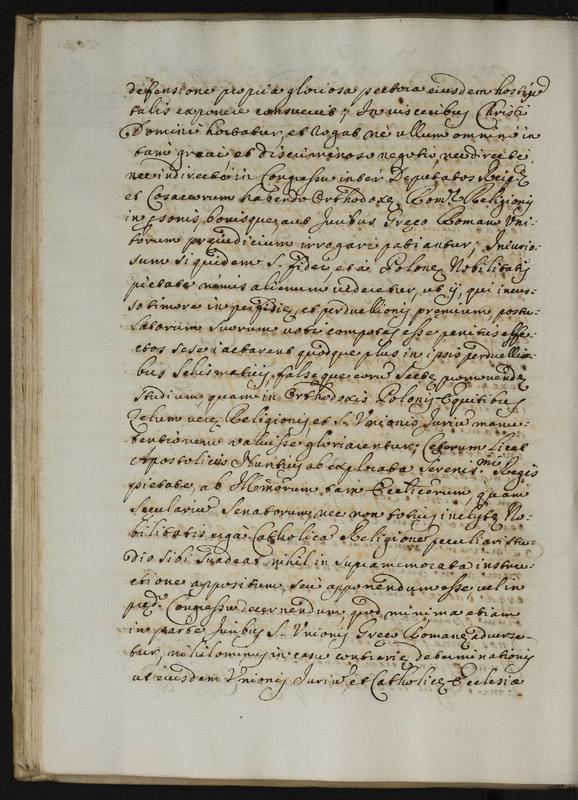 defensione propria gloriosa pectora eiusdem hosti
talis exponere consuevit; In visceribus Christi
Domini hortatur, et rogat ne ullum omnino in
tam gravi et discriminoso negotio, nec directe,
nec indirecte in Congressu inter Deputatos Regis
et Cosacorum habendo Orthodoxę Rom. Religionis
in personis, bonisque, aut Juribus Gręco Roman. Uni-
torum pręiudicium irrogari patiantur; Iniurio-
sum siquidem S. fidei, et a Polonę Nobilitatis
pietate nimis alienum videretur, ut ij, qui
so timore in perfidię, et perduellionis premium, postu-
latorum suorum voti compotes esse penitus effe-
ctos sese iactarent quodque plus in ipsis perduelli
bus schismaticis, falsęque eorum sectę promovendę
studium quam in Orthodoxis Polonis Equitibus
Zelum verę Religionis et S. Unionis Jurium manu-
tentionem valuisse gloriarentur; Cęterum licet
Apostolicus Nuntius ab explorata Serenis.mi Regis
pietate, ac Illmorum tam Ecclicorum quam
secularium Senatorum, nec non totius inclytę No-
bilitatis erga Catholicam Religionem peculiari stu-
dio sibi suadeat nihil in supramemorata instru-
ctione appositum, seu apponendum esse, vel in
pręd. Congressu decernendum quod minima etiam
in parte Juribus S. Unionis Gręco Romanę adverse-
tur, nihilominus in casu contrarię determinationis
ut eiusdem Unionis Jurium et Catholicę Ecclesiæ